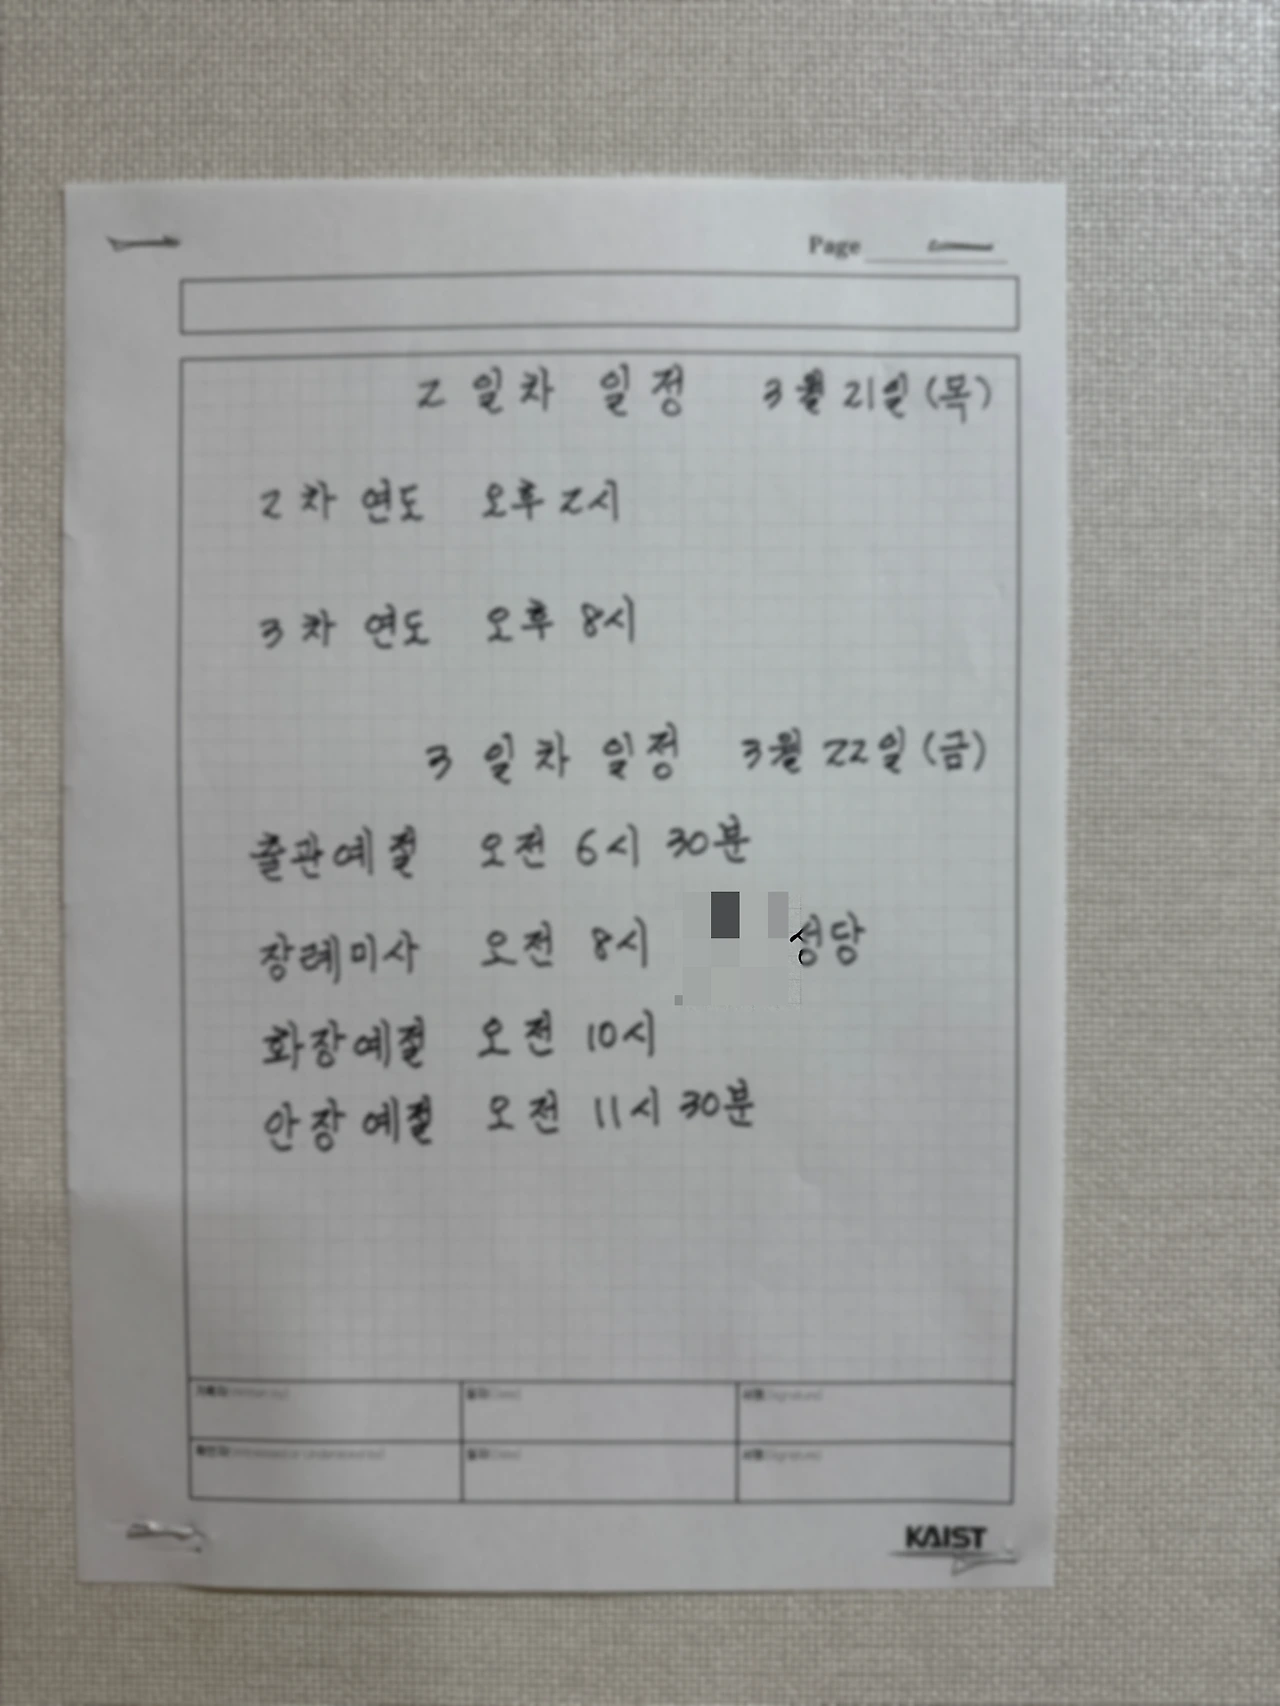 Page
2일차 일정 3월 21일 (목)
2차 연도 오후 2시
3차 연도 오후 8시
3일차 일정 3월 22일 (금)
출관예절 오전 6시 30분
장례미사 오전 8시 성당
화장예절 오전 10시
안장예절 오전 11시 30분
KAIST